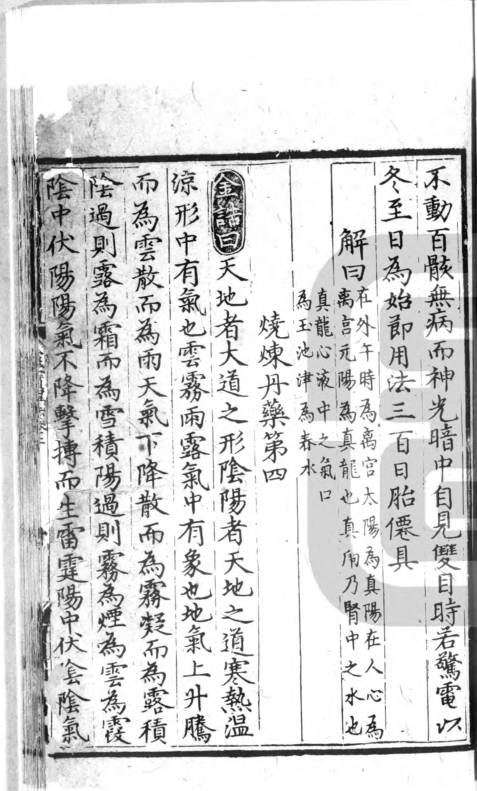 不動百骸無病而神光暗中自見雙目時若驚電以
冬至日為始節用法三百日胎僊具
解曰在外午時為离宮太陽為真陽在人心為
离宮元陽為真龍也真虎乃腎中之水也
真龍心液中之氣口
為玉池津為春水
燒煉丹藥第四
金誥曰天地者大道之形陰陽者天地之道寒熱温
涼形中有氣也雲霧雨露氣中有象也地氣上升騰
而為雲散而為雨天氣下降散而為霧凝而為露積
陰過則露為霜而為雪積陽過則霧為煙為雲為霞
陰中伏陽陽氣不降擊搏而生雷霆陽中伏陰陰氣